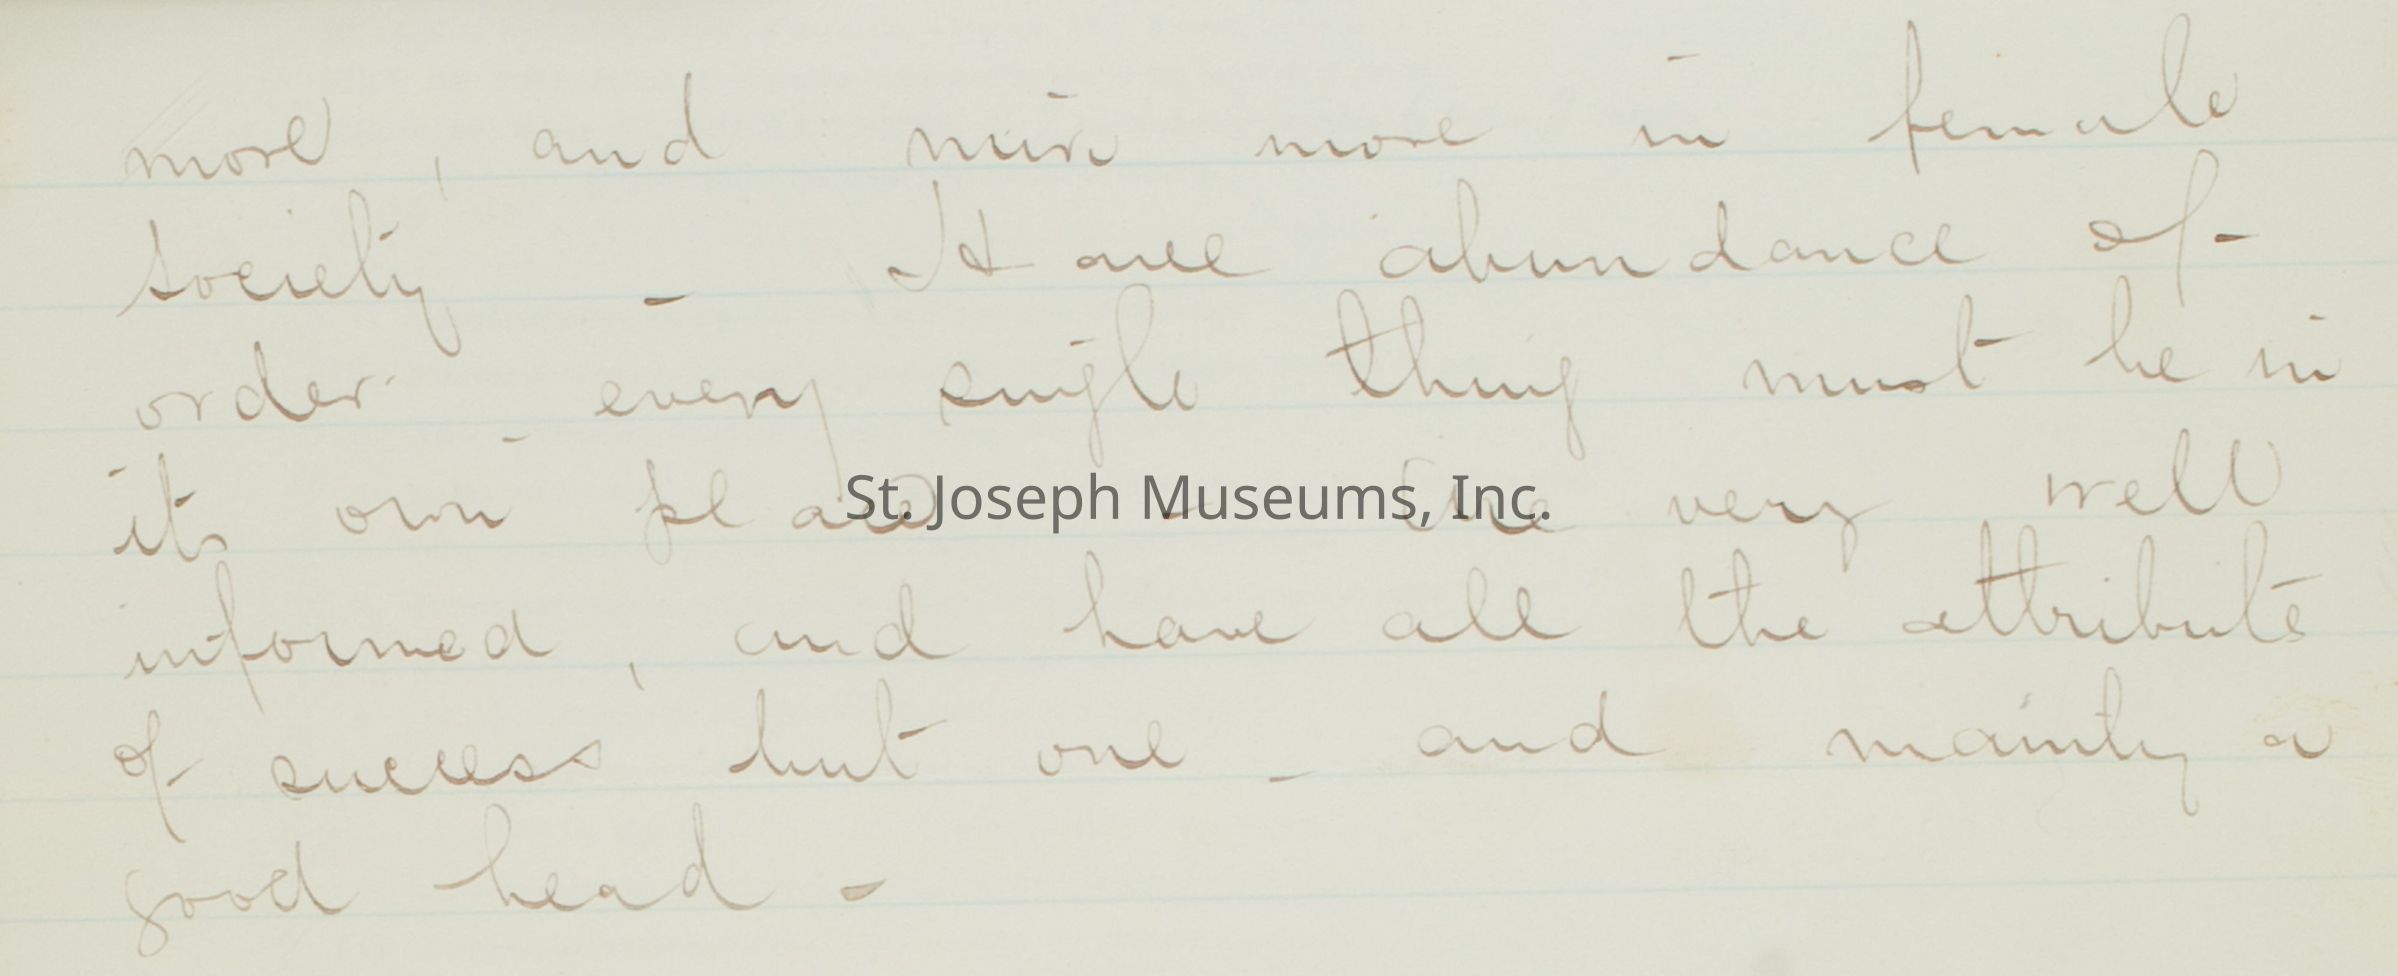 more, and mix more in female
society - Have abundance of -
order - every single thing must be in
its own place - Are very well
St. Joseph Museums, Inc.
informed, and have all the attribute
of success but one - and mainly a
good head -